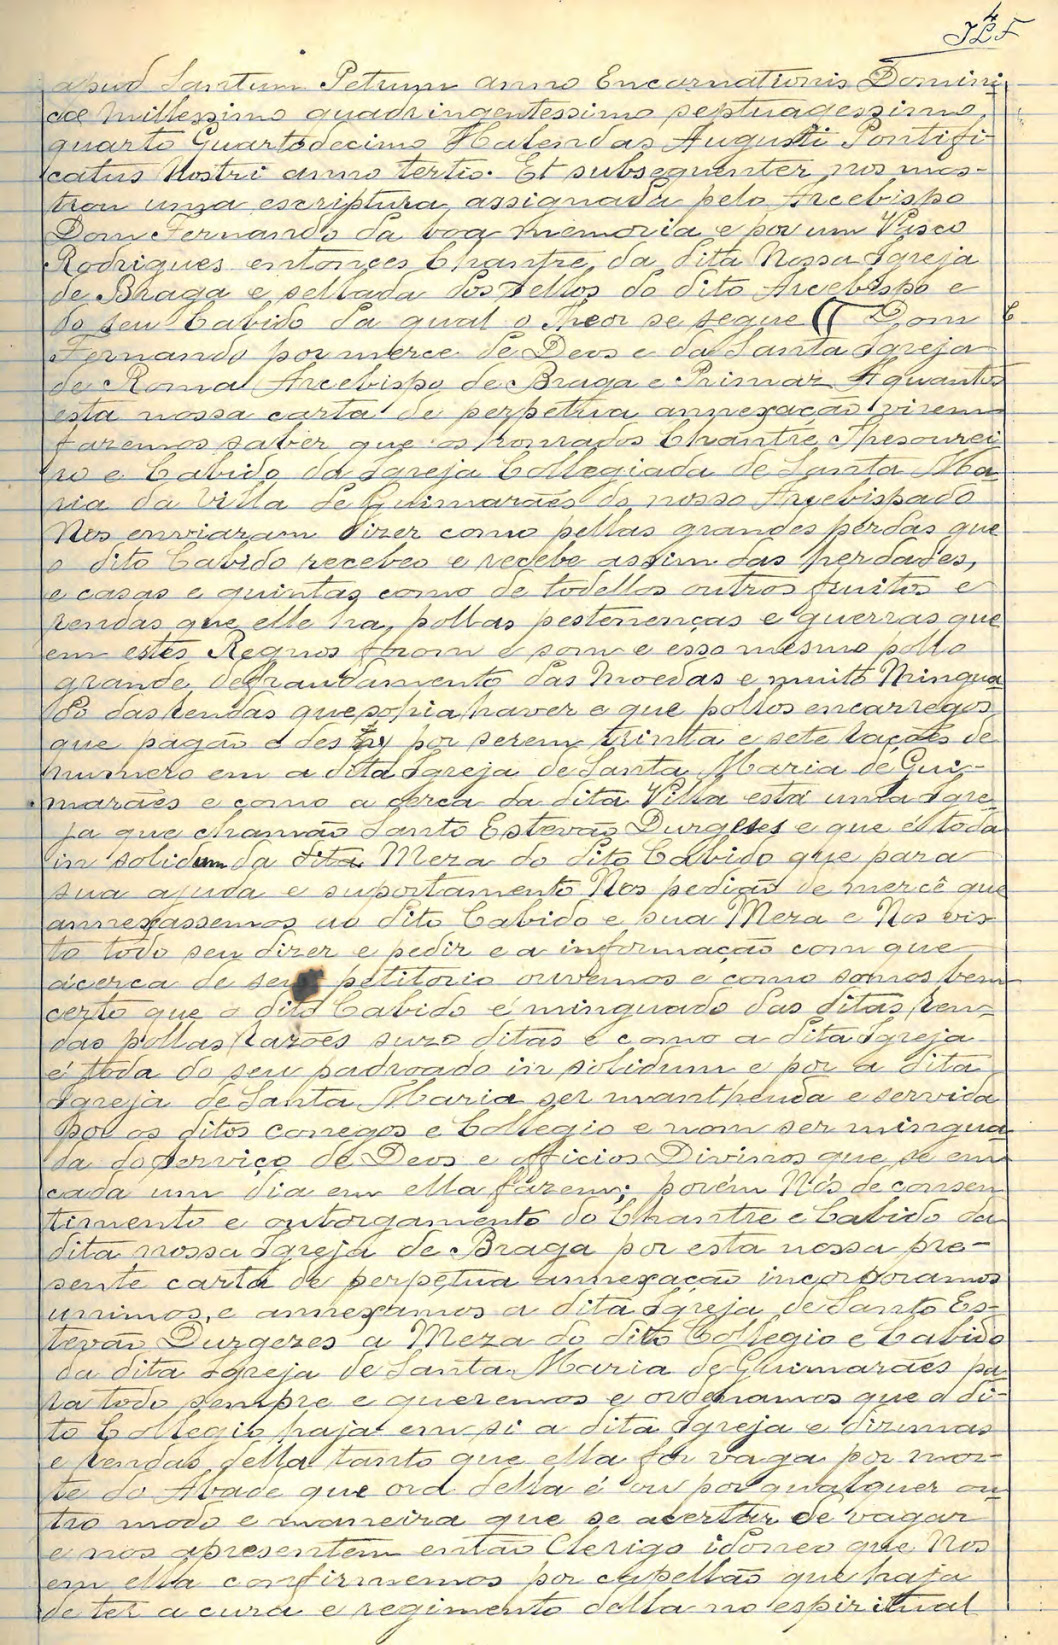 4
JLF
apud Santum Petrum anno Encarnationis Domini
cae millessimo quadringentessimo septuagessimo
quarto Quartodecimo Kalendas Augusti Pontifi
catus Nostri anno tertio. Et subsequenter nos mos-
trou uma escriptura assignada pelo Arcebispo
Dom Fernando da boa memoria e por um Vasco
Rodrigues entonces Chantre da dita Nossa Igreja
de Braga e sellada dos sellos do dito Arcebispo e
do seu Cabido da qual o theor se segue (( Dom
Fernando por merce de Deos e da Santa Igreja
de Roma Arcebispo de Braga e Primaz Aquantos
esta nossa carta de perpetua annexação virem
fazemos saber que os honrados Chantre Thesourei
ro e Cabido da Igreja Collegiada de Santa Ma
ria da Villa de Guimarães do nosso Arcebispado
Nos enviaram dizer como pellas grandes perdas que
o dito Cabido recebeo e recebe assim das herdades,
e casas e quintas como de todellos outros fruitos e
rendas que elle ha, pollas pestenenças e guerras que
em estes Regnos forom e som e esso mesmo pollo
grande defraudamento das Moedas e muito Mingua
do das rendas que sohia haver e que pollos encarregos
que pagão e des hy por serem trinta e sete rações de
numero em a dita Igreja de Santa Maria de Gui-
marães e como a cerca da dita Villa está uma Igre
ja que chamão Santo Estevão Durgeses e que é toda
in solidum da dita Meza do dito Cabido que para
sua ajuda e suportamento Nos pedião de mercê que
annexassemos ao dito Cabido e sua Meza e Nos vis
to todo seu dizer e pedir e a informação com que
ácerca de seu petitorio ouvemos e como somos bem
certo que o dito Cabido é minguado das ditas ren-
das pollas razões suzo ditas e como a dita Igreja
é toda do seu padroado in solidum e por a dita
Igreja de Santa Maria ser manthenda e servida
por os ditos conegos e Collegio e nom ser mingua
da do serviço de Deos e Oficios Divinos que se em
cada um dia em ella fazem; porém Nós de consen
timento e outorgamento do Chantre e Cabido da
dita nossa Igreja de Braga por esta nossa pre-
sente carta de perpetua annexação incorporamos
unimos, e annexamos a dita Igreja de Santo Es-
tevão Durgezes a Meza do dito Collegio e Cabido
da dita Igreja de Santa Maria de Guimarães pa
ra todo sempre e queremos e ordenamos que o di-
to Collegio haja em si a dita Igreja e dizimas
e rendas della tanto que ella for vaga por mor-
te do Abade que ora della é ou por qualquer ou
tro modo e maneira que se acertar de vagar
e nos apresentem então Clerigo idoneo que Nos
em ella confirmemos por capellão que haja
de ter a cura e regimento della no espiritual